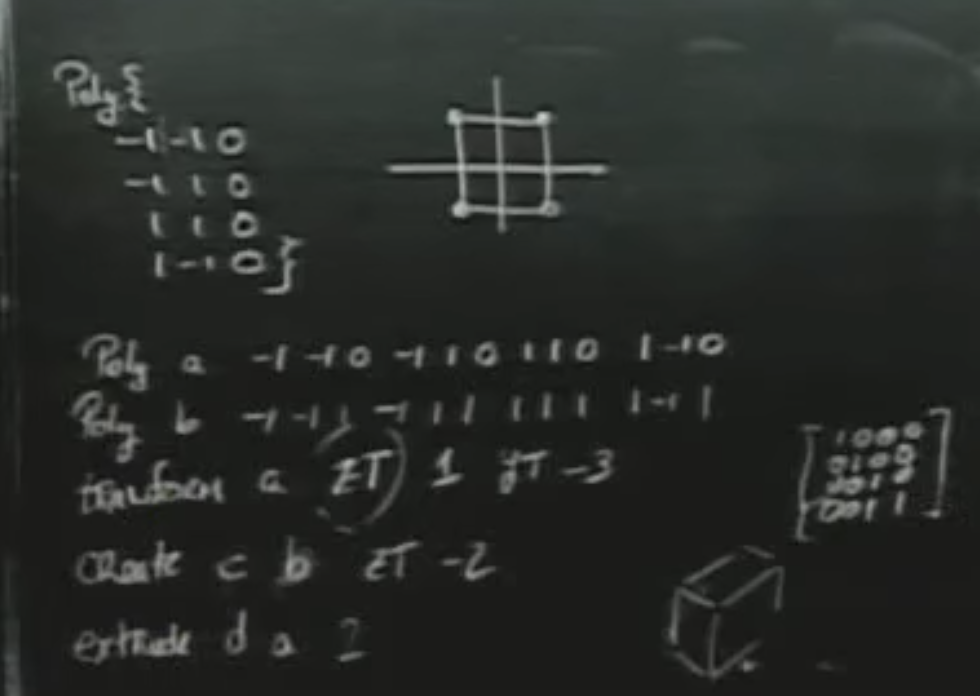 Poly {
-1 -1 0
-1 1 0
1 1 0
1 -1 0 }
Poly a -1 -1 0 -1 1 0 1 1 0 1 -1 0
Poly b -1 -1 1 -1 1 1 1 1 1 1 -1 1
transform a ZT 1 yT -3
create c b ZT -2
extrude d a 2
1 0 0 0
0 1 0 0
0 0 1 0
0 0 1 1